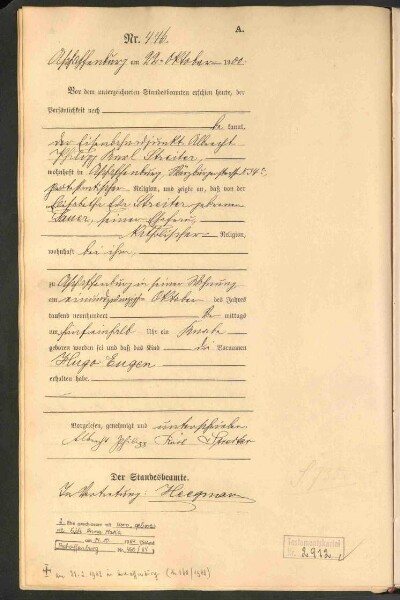 A.
Nr. 446.
Aschaffenburg am 22. Oktober 1900
Vor dem unterzeichneten Standesbeamten erschien heute, der
Persönlichkeit nach
be kannt,
der Eisenbahnadjunkt Albrecht
Philipp Karl Streiter,
wohnhaft in Aschaffenburg, Würzburgerstraße
protestantischer Religion, und zeigte an, daß von der
Elisabetha Streiter geborenen
Sauer, seiner Ehefrau,
katholischer Religion,
wohnhaft bei ihm,
zu Aschaffenburg in seiner Wohnung
am einundzwanzigsten Oktober des Jahres
tausend neunhundert mittags
um Uhr ein Knabe
geboren worden sei und daß das Kind die Vornamen
Hugo Eugen
erhalten habe.
Vorgelesen, genehmigt und unterschrieben
Albrecht Philipp Karl Streiter
Der Standesbeamte.
In Vertretung:
Aschaffenburg Nr.
Testamentskartei
Nr. 2912